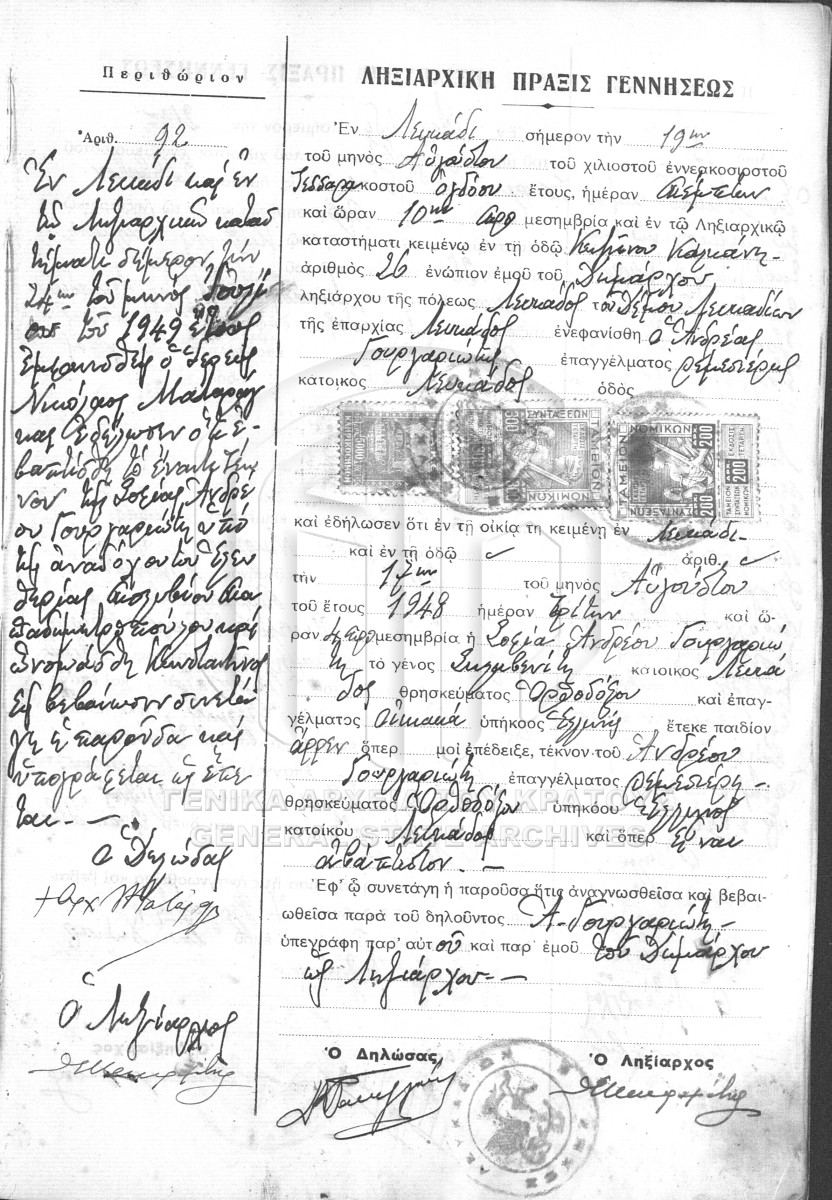 Περιθώριον
Ἀριθ. 92
Ἐν Λευκάδι καὶ ἐν
τῷ Ληξιαρχικῷ κατασ
τήματι σήμερον τὴν
24ην τοῦ μηνὸς
τοῦ 1949 ἔτους
ἐμφανισθεὶς ὁ ἱερεὺς
Νικόλαος
καὶ ἐδήλωσεν ὅτι ἐ-
βαπτίσθη τὸ ἔναντι τέκ
νον τῆς Σοφίας Ἀνδρέ
ου Γουργαριώτη ὑπὸ
τῆς ἀναδόχου του Ἐλευ
θερίας
Παπαδημητροπούλου καὶ
ὠνομάσθη Κωνσταντῖνος
Εἰς βεβαίωσιν συνετά
γη ἡ παροῦσα καὶ
ὑπογράφεται ὡς ἕπε
ται. –
Ὁ Δηλώσας
Ὁ Ληξίαρχος
ΛΗΞΙΑΡΧΙΚΗ ΠΡΑΞΙΣ ΓΕΝΝΗΣΕΩΣ
Ἐν Λευκάδι σήμερον τὴν 19ην
τοῦ μηνὸς Αὐγούστου τοῦ χιλιοστοῦ ἐννεακοσιοστοῦ
τεσσαρακοστοῦ ὀγδόου ἔτους, ἡμέραν Πέμπτην
καὶ ὥραν 10ην προ μεσημβρία καὶ ἐν τῷ Ληξιαρχικῷ
καταστήματι κειμένῳ ἐν τῇ ὁδῷ
ἀριθμὸς 26 ἐνώπιον ἐμοῦ τοῦ Δημάρχου
ληξιάρχου τῆς πόλεως Λευκάδος τοῦ Δήμου Λευκαδίων
τῆς ἐπαρχίας Λευκάδος ἐνεφανίσθη ὁ Ἀνδρέας
Γουργαριώτης ἐπαγγέλματος
κάτοικος Λευκάδος ὁδὸς
ΣΥΝΤΑΞΕΩΝ
ΤΑΜΕΙΟΝ
ΝΟΜΙΚΩΝ
ΝΟΜΙΚΩΝ
ΤΑΜΕΙΟΝ
ΣΥΝΤΑΞΕΩΣ
200
200
καὶ ἐδήλωσεν ὅτι ἐν τῇ οἰκίᾳ τη κειμένῃ ἐν Λευκάδι-
καὶ ἐν τῇ ὁδῷ ἀριθ.
τὴν 17ην τοῦ μηνὸς Αὐγούστου
τοῦ ἔτους 1948 ἡμέραν Τρίτην καὶ ὥ-
ραν 4 προ μεσημβρία ἡ Σοφία Ἀνδρέου Γουργαριώ
τη τὸ γένος Σκλαβενίτη κάτοικος Λευκά
δος θρησκεύματος Ὀρθοδόξου καὶ ἐπαγ-
γέλματος Οἰκιακὰ ὑπήκοος Ἑλληνὶς ἔτεκε παιδίον
ἄρρεν ὅπερ μοὶ ἐπέδειξε, τέκνον τοῦ Ἀνδρέου
Γουργαριώτη ἐπαγγέλματος
θρησκεύματος Ὀρθοδόξου ὑπηκόου Ἕλληνος
κατοίκου Λευκάδος καὶ ὅπερ εἶναι
ἀβάπτιστον. –
Ἐφ' ᾧ συνετάγη ἡ παροῦσα ἥτις ἀναγνωσθεῖσα καὶ βεβαι-
ωθεῖσα παρὰ τοῦ δηλοῦντος Ἀ. Γουργαριώτη –
ὑπεγράφη παρ' αὐτοῦ καὶ παρ' ἐμοῦ τοῦ Δημάρχου
ὡς Ληξιάρχου. –
Ὁ Δηλώσας
Ὁ Ληξίαρχος
ΓΕΝΙΚΑ ΑΡΧΕΙΑ ΤΟΥ ΚΡΑΤΟΥΣ
GENERAL STATE ARCHIVES